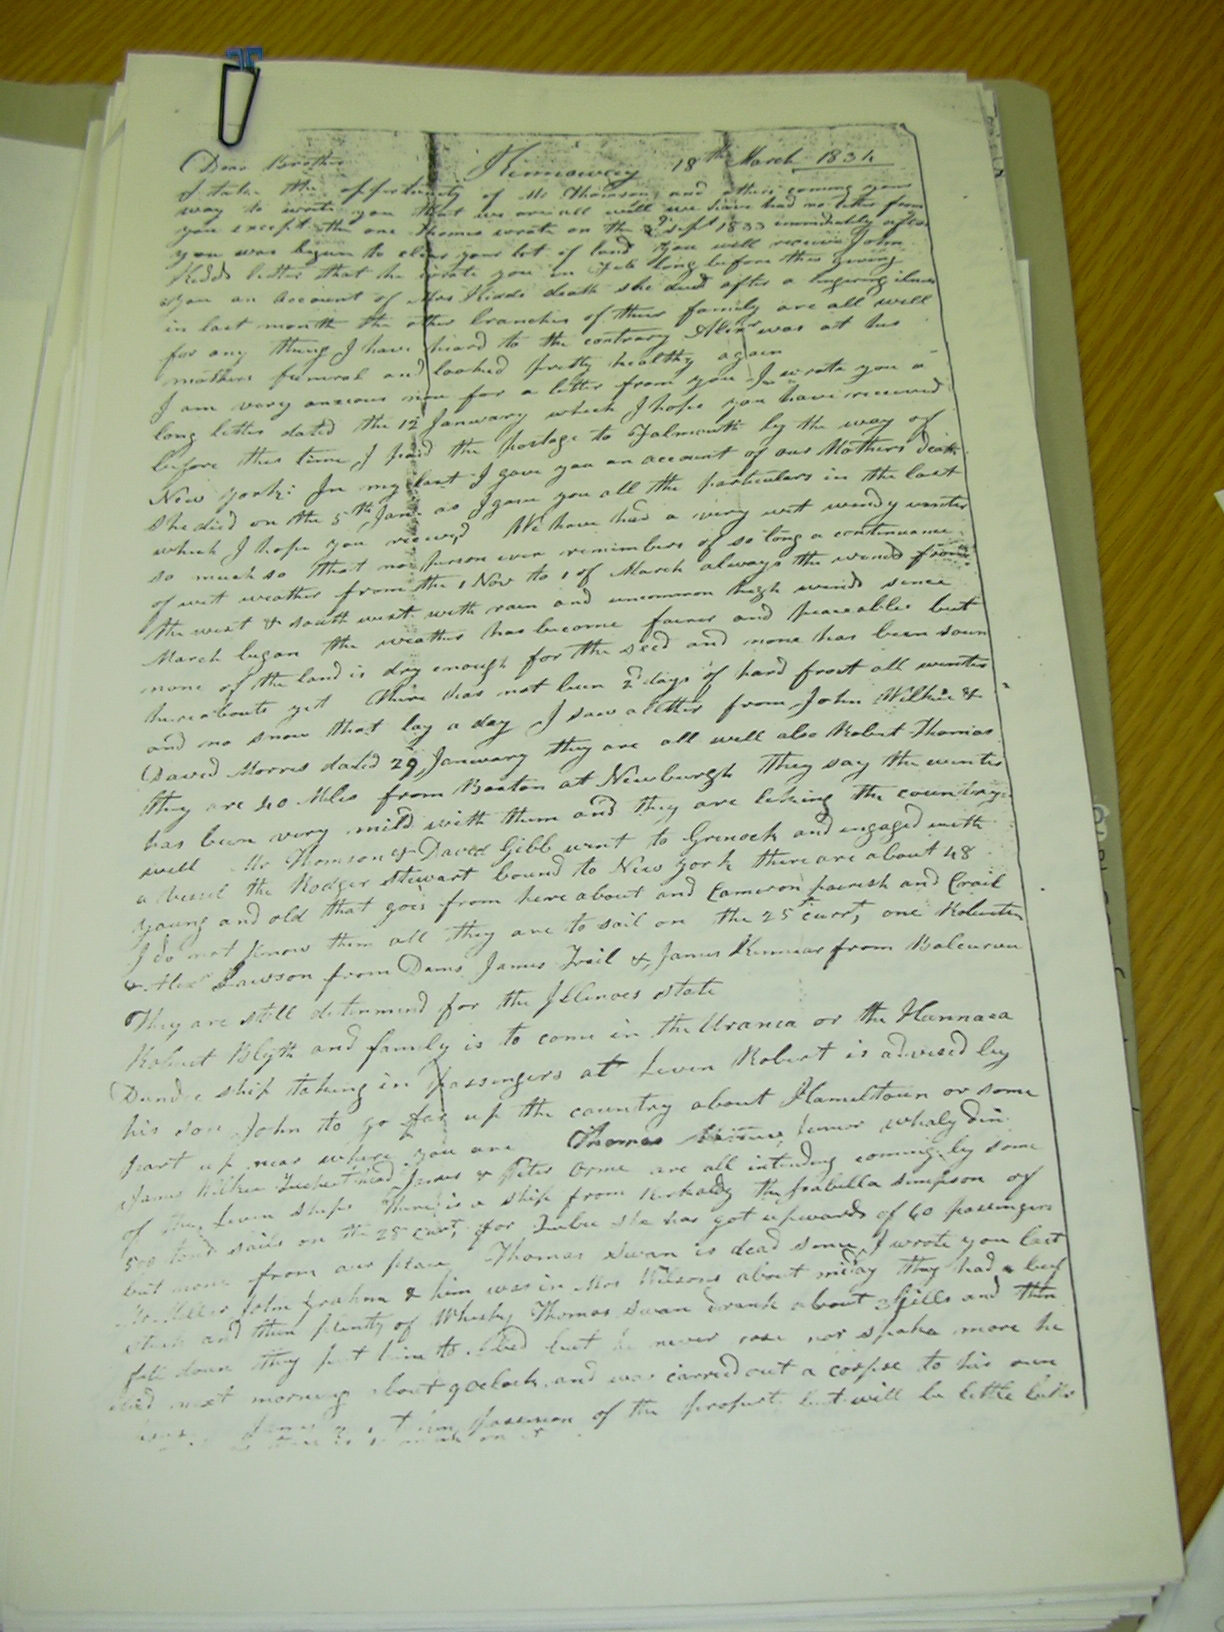 Dear Brother Kennoway 18th March 1834
I take the opportunity of Mr Thomson and others coming your
way to write you that we are all well we have had no letter from
you except the one Thomas wrote on the 2d Sept 1833 immediatly after
you was begun to clear your lot of land you will receive John
Kidds letter that he wrote you in Feb long before this giving
you an account of Mrs Kidds death she died after a lingering illness
in last month the other branches of their family are all well
for any thing I have heard to the contrary Alexr was at his
mothers funeral and looked pretty healthy again
I am very anxious now for a letter from you I wrote you a
long letter dated the 12 Janwary which I hope you have received
before this time I paid the postage to Falmouth by the way of
New York: In my last I gave you an account of our Mothers death
she died on the 5th Jan. as I gave you all the particulars in the last
which I hope you receivd We have had a very wet windy winter
so much so that no person ever remimbers of so long a continuance
of wet weather from the 1 Nov to 1 of March always the wind from
the west & south west with rain and uncommon high winds since
March began the weather has become fairer and peaceable but
none of the land is dry enough for the seed and none has been sown
hereabouts yet there has not been 2 days of hard frost all winter
and no snow that lay a day I saw a letter from John Wilkie &
David Morris dated 29 Janwary they are all well also Robert Thomas
they are 40 Miles from Boston at Newburgh they say the winter
has been very mild with them and they are leking the country
well Mr Thomson & David Gibb went to Grenock and engaged with
a vessel the Rodger Stewart bound to New York there are about 48
young and old that goes from here about and Cameron parish and Crail
I do not know them all they are to sail on the 25th currt, one Robertson
& Alexr Lawson from Dams James Trail & James Kinnear from Balcurvie
They are still determined for the Illinoes state
Robert Blyth and family is to come in the Urania or the Hannaea
Dundee ship taking in passengers at Leven Robert is advised by
his son John to go far up the country about Hameltown or some
part up near where you are Thomas
James Wilkie James & Peter Orme are all intending coming by some
of the Leven ships There is a ship from Kirkaldy the Isabella Simpson of
500 tons sails on the 28 currt, for Quebec she has got upwards of 60 passengers
but none from our place Thomas Swan is dead since I wrote you last
Mr Miller John Grahme & him was in Mrs Wilsons about miday they had a beef
stack and then plenty of Whisky Thomas Swan drank about 3 Gills and then
fell down they put him to bed but he never rose nor spoke more he
died next morning about 9 oclock and was carried out a corpse to his own
possession of the but will be little